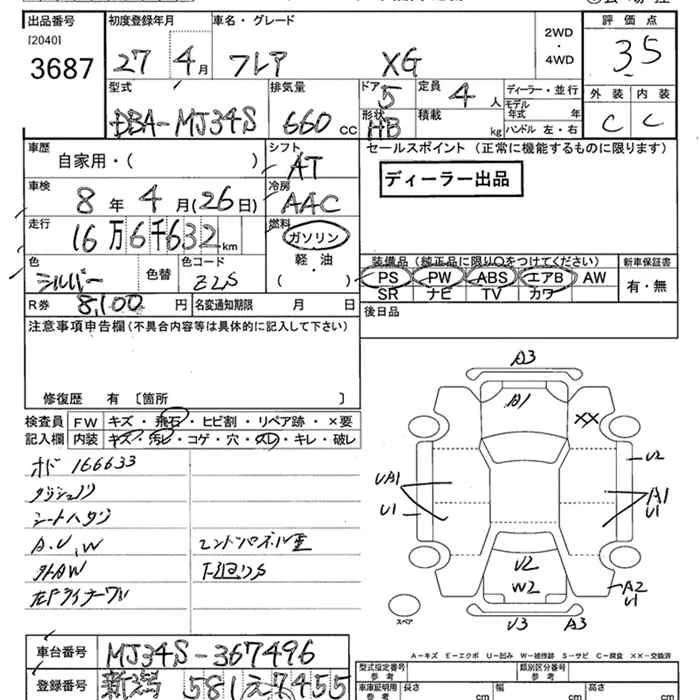 出品番号 初度登録年月 車名・グレード 2WD・4WD 評価点
[2040] 3687 27 4月 フレア XG 3.5
型式 排気量 ドア 定員 ディーラー・並行 外装 内装
DBA-MJ34S 660cc 5 4人 モデル年式 年 C C
形状 HB 積載 kg ハンドル 左・右
車歴 シフト セールスポイント (正常に機能するものに限ります)
自家用・( ) AT
ディーラー出品
車検 8年4月(26日) 冷房 AAC
走行 16万6千632km 燃料 ガソリン
軽油
( )
装備品 (純正品に限り○をつけてください) 新車保証書
PS PW ABS エアB AW 有・無
SR ナビ TV カワ
色 シルバー 色替 色コード Z2S
R券 8,100円 名変通知期限 月 日
後日品
注意事項申告欄(不具合内容等は具体的に記入して下さい)
修復歴 有 〔箇所 〕
検査員記入欄 FW キズ・飛石・ヒビ割・リペア跡・×要
内装 キズ・汚レ・コゲ・穴・スレ・キレ・破レ
オド 166633
シートハタジ
A.U.W エンドパネル歪
外AW 下廻りS
A3
A1
XX
U2
UA1
A1
U1
U1
U2
W2
A2
U1
U3 A3
スペア
A-キズ E-エクボ U-凹み W-補修跡 S-サビ C-腐食 XX-交換済
車台番号 MJ34S-367496
登録番号 新潟 581 え 7455
型式指定番号 参考 類別区分番号 参考
車庫証明用 参考 長さ cm 幅 cm 高さ cm